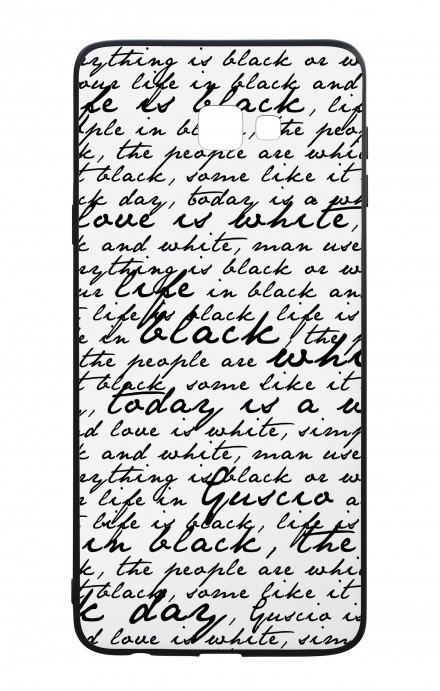 rything is black or w
our life in black and
fe is black, lif
ple in bl the peop
k, the people are whi
t black, some like it
ck day, today is a wh
love is white,
k and white, man use
rything is black or w
ur life in black an
t life is black, life is
e in black, the p
the people are whi
t black, some like it
, today is a w
d love is white, simp
k and white, man use
rything is black or w
r life in Guscio a
t life is black, life is
in black, the
k, the people are whi
t black, some like it
k day, Guscio is
d love is white, sim